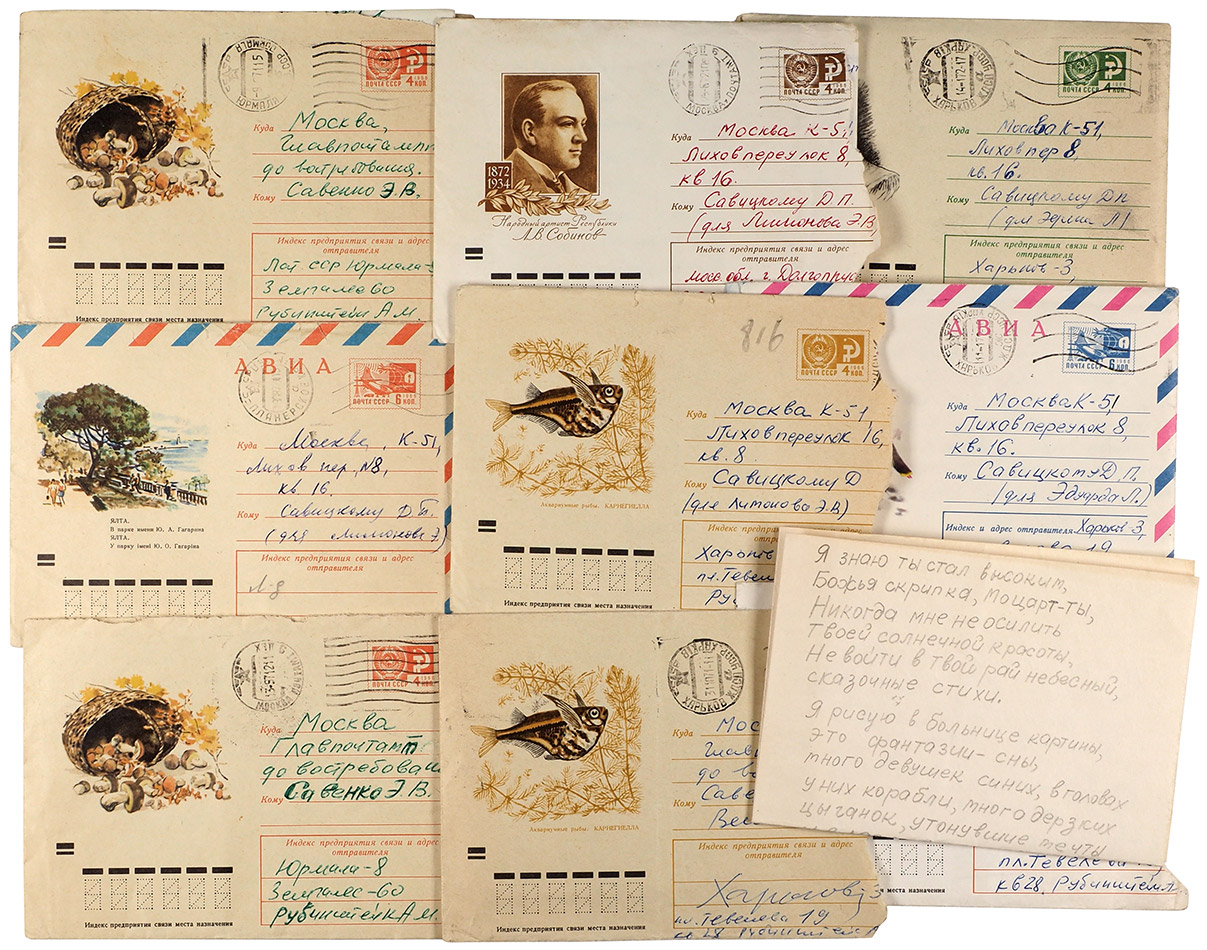 ПОЧТА СССР
4 КОП.
Куда Москва,
Главпочтамп
до востребования.
Кому Савенко Э. В.
Индекс предприятия связи и адрес
отправителя
Лат ССР Юрмала-
Земгалес 60
Рубинштейн А М.
Индекс предприятия связи места назначения
1872
1934
Народный артист Республики
Л.В. Собинов
ПОЧТА СССР
4 КОП.
Куда Москва К-51,
Лихов переулок 8,
кв 16.
Кому Савицкому Д П.
(для Лимонова Э.В.
Индекс предприятия связи и адрес
отправителя
Моск обл. г. Долгопруд
ПОЧТА СССР
4 КОП.
Куда Москва К-51,
Лихов пер 8,
кв. 16.
Кому Савицкому Дп
Индекс предприятия связи и адрес
отправителя
Харьков-3,
АВИА
ПОЧТА СССР
6 КОП.
ЯЛТА.
В парке имени Ю. А. Гагарина
ЯЛТА.
У парку імені Ю. О. Гагаріна
Куда Москва, К-51,
Лихов пер. №8,
кв 16.
Кому Савицкому Д.П.
(для Лимонова Э)
Индекс предприятия связи и адрес
отправителя
Л-8
816
ПОЧТА СССР
4 КОП.
Куда Москва К-51,
Лихов переулок 16,
кв. 8.
Кому Савицкому Д
(для Лимонова Э.В)
Аквариумные рыбы. КАРНЕГИЕЛЛА
Индекс предприятия связи и адрес
отправителя
Харьков
пл. Тевел
Ру
Индекс предприятия связи места назначения
АВИА
ПОЧТА СССР
6 КОП.
Куда Москва К-51,
Лихов переулок 8,
кв. 16.
Кому Савицкому Д. П.
(для Эдуарда Л.)
Индекс и адрес отправителя Харьков 3,
пл. Тевелева
кв 28, Рубинштейн А
ПОЧТА СССР
4 КОП.
Куда Москва
Главпочтамт
до востребован
Кому Савенко Э. В.
Индекс предприятия связи и адрес
отправителя
Юрмала-8
Земгалес-60
Рубинштейн А М.
Индекс предприятия связи места назначения
Куда Мос
Глав
до во
Кому Саве
Вес
Аквариумные рыбы. КАРНЕГИЕЛЛА
Индекс предприятия связи и адрес
отправителя
Харьков 3
пл. Тевелева 19
кв 28 Рубинштейн А
Индекс предприятия связи места назначения
Я знаю ты стал высоким,
Божья скрипка, Моцарт-ты,
Никогда мне не осилить
Твоей солнечной красоты,
Не войти в твой рай небесный,
сказочные стихи.
Я рисую в больнице картины,
это фантазии-сны,
много девушек синих, в головах
у них корабли, много дерзких
цыганок, утонувшие мечты